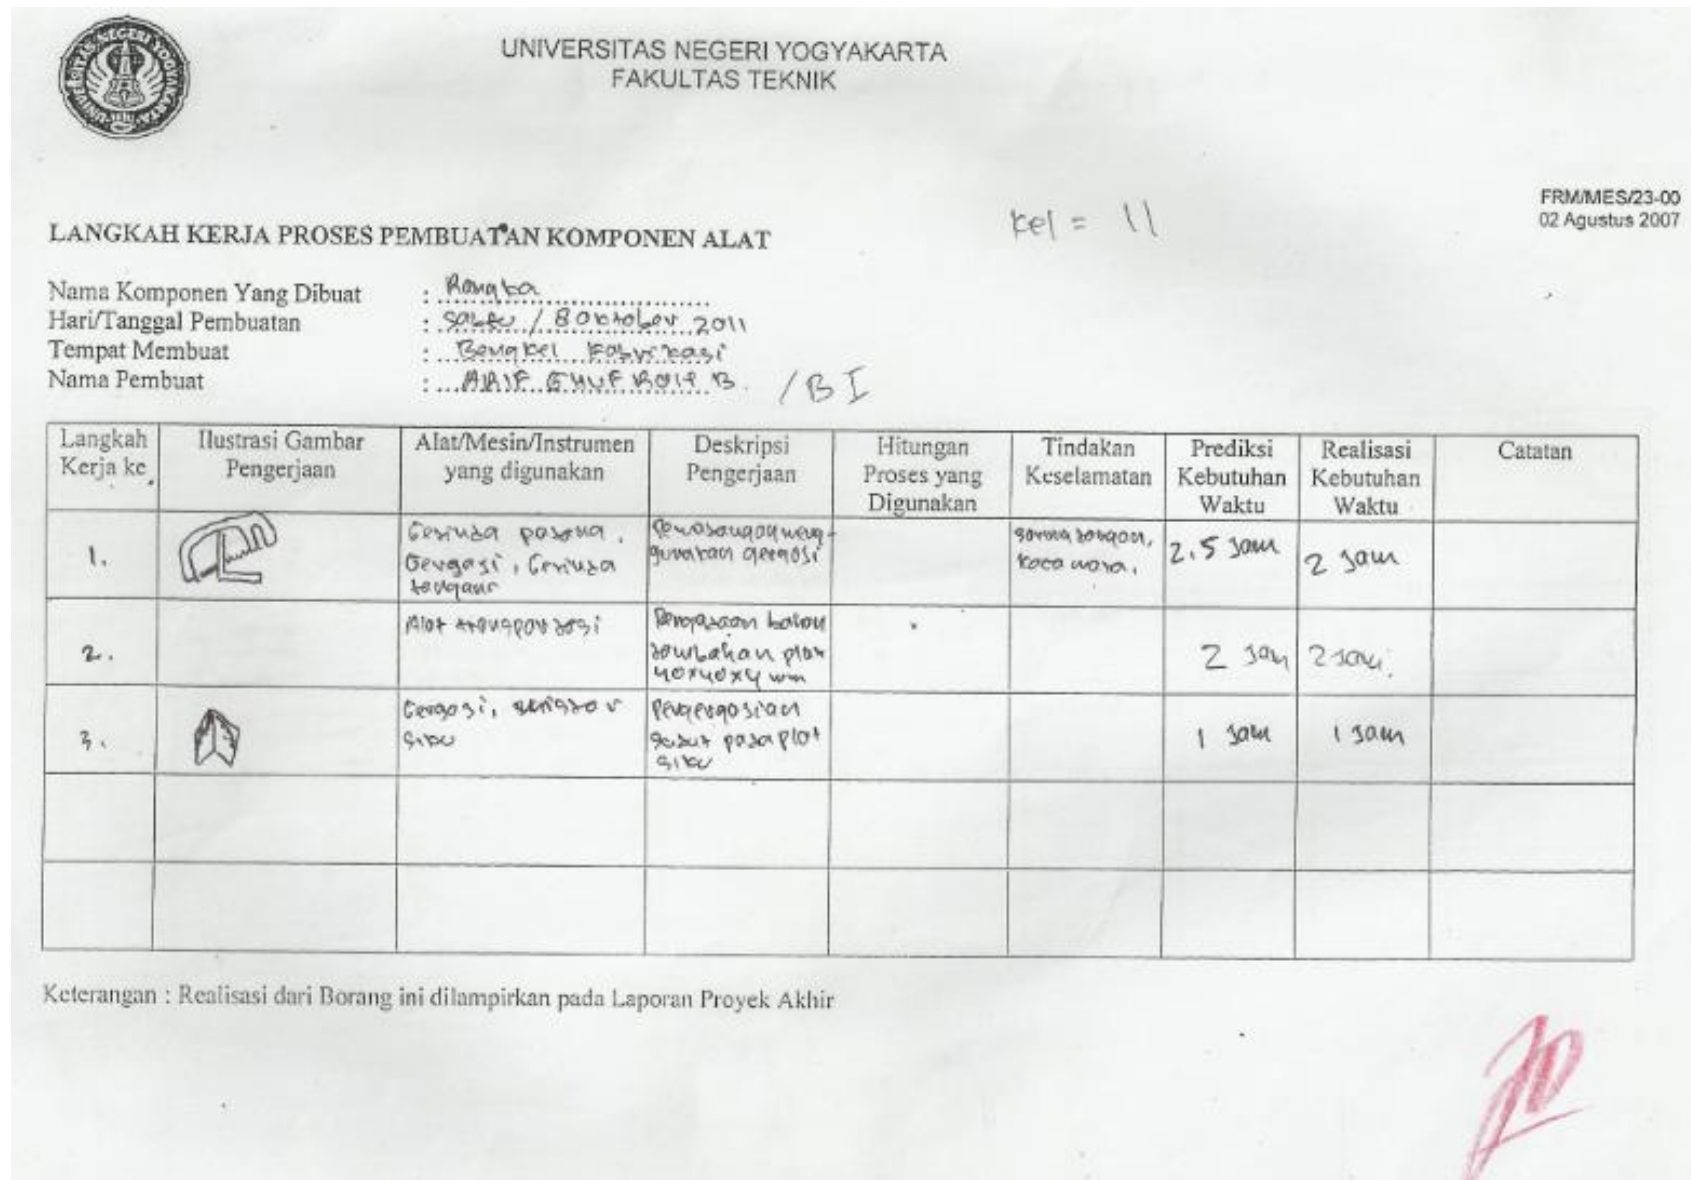 UNIVERSITAS NEGERI YOGYAKARTA
FAKULTAS TEKNIK
FRM/MES/23-00
02 Agustus 2007
kel = 11
LANGKAH KERJA PROSES PEMBUATAN KOMPONEN ALAT
Nama Komponen Yang Dibuat : Rangka
Hari/Tanggal Pembuatan : Sabtu / 8 Oktober 2011
Tempat Membuat : Bengkel Fabrikasi
Nama Pembuat : ARIF GHUFRON B. / BI
Langkah Kerja ke
Ilustrasi Gambar Pengerjaan
Alat/Mesin/Instrumen yang digunakan
Deskripsi Pengerjaan
Hitungan Proses yang Digunakan
Tindakan Keselamatan
Prediksi Kebutuhan Waktu
Realisasi Kebutuhan Waktu
Catatan
1.
Gerinda potong,
Gergaji, Gerinda
tangan
Pemotongan meng-
gunakan gergaji
sarung tangan,
kaca mata.
2.5 Jam
2 Jam
2.
Alat transportasi
bahan
tambahan plat
40x40x4 mm
2 Jam
2 Jam
3.
Gergaji,
siku
Pengergajian
sudut pada plat
siku
1 Jam
1 Jam
Keterangan : Realisasi dari Borang ini dilampirkan pada Laporan Proyek Akhir